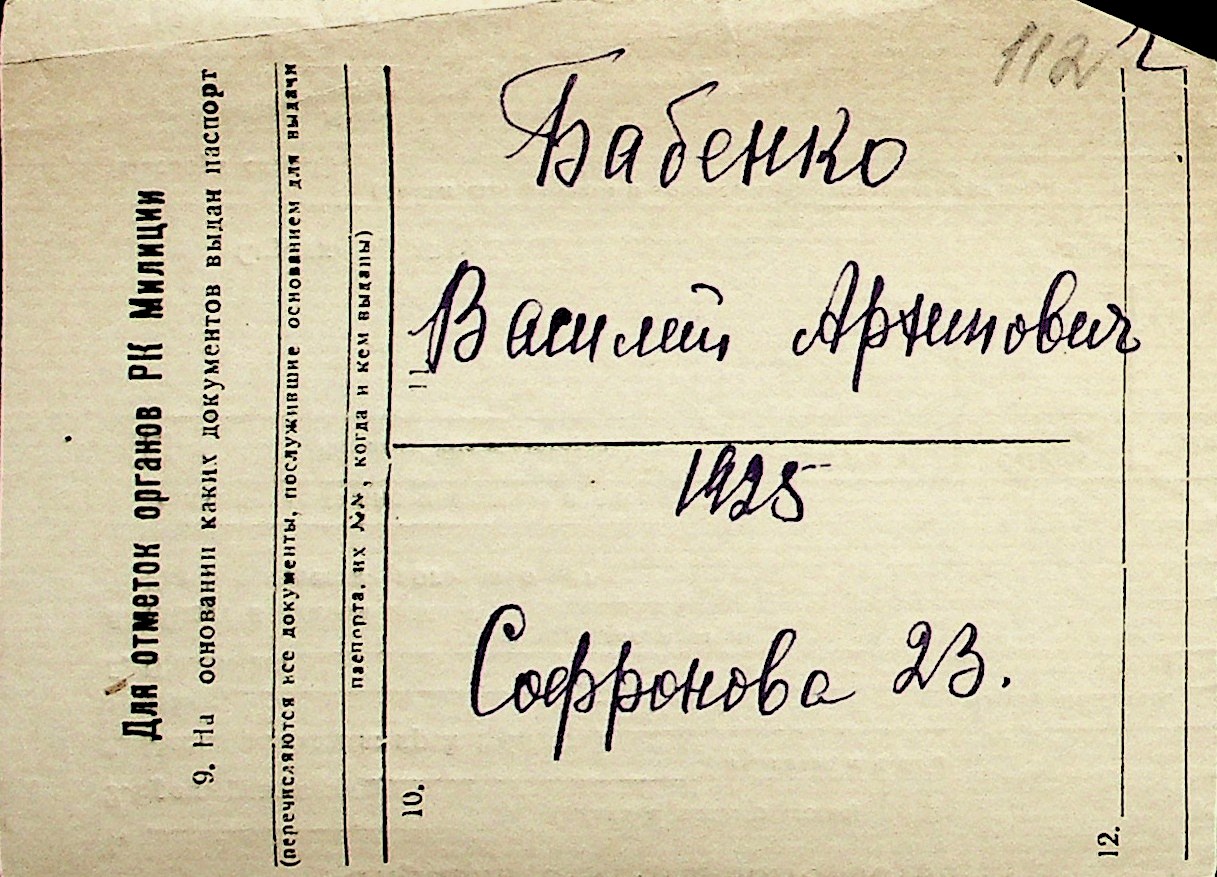 112
Бабенко
Василий Архипович
1925
Софронова 23.
Для отметок органов РК Милиции
9. На основании каких документов выдан паспорт
(перечисляются все документы, послужившие основанием для выдачи
паспорта, их №№, когда и кем выданы)
10.
12.